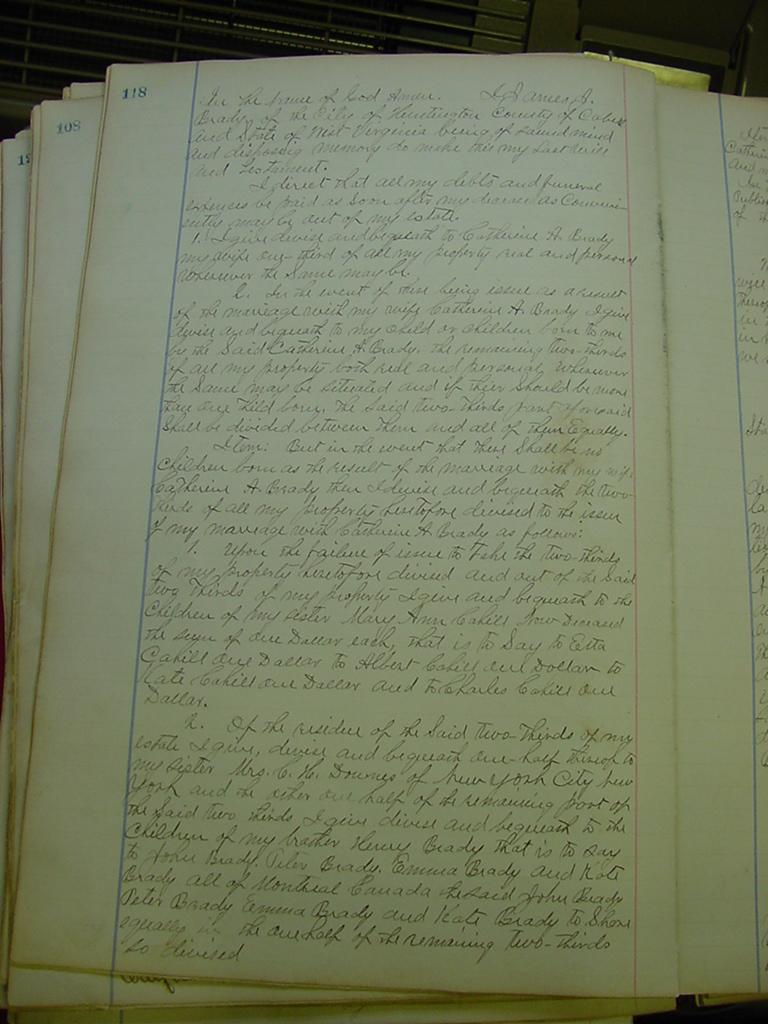 118
108
In the name of God Amen. I James J.
Brady of the City of Huntington County of Cabell
and State of West Virginia being of sound mind
and disposing memory do make this my Last Will
and Testament.
I direct that all my debts and funeral
expenses be paid as soon after my decease as Conveni-
ently may be out of my estate.
1. I give devise and bequeath to Catherine A. Brady
my wife one-third of all my property real and personal
wherever the same may be.
2. In the event of there being issue as a result
of the marriage with my wife Catherine A. Brady I give
devise and bequeath to my child or children born to me
by the said Catherine A. Brady, the remaining two-thirds
of all my property both real and personal, wherever
the same may be situated and if there should be more
than one child born, the said two-thirds part aforesaid
shall be divided between them and all of them Equally.
Item: But in the event that there shall be no
children born as the result of the marriage with my wife
Catherine A. Brady then I devise and bequeath the two-
thirds of all my property heretofore divised to the issue
of my marriage with Catherine A Brady as follows:
1. Upon the failure of issue to take the two-thirds
of my property heretofore divised and out of the said
two thirds of my property I give and bequeath to the
Children of my sister Mary Ann Cahill Now Deceased
the sum of One Dollar each, that is to say to Etta
Cahill One Dollar to Albert Cahill One Dollar to
Kate Cahill One Dollar and to Charles Cahill One
Dollar.
2. Of the residue of the said two-thirds of my
estate I give, devise and bequeath one-half thereof to
my sister Mrs. C. H. Downes of New York City New
York and the other one half of the remaining part of
the said two thirds I give divise and bequeath to the
Children of my brother Henry Brady that is to say
to John Brady, Peter Brady, Emma Brady and Kate
Brady all of Montreal Canada the said John Brady
Peter Brady Emma Brady and Kate Brady to Share
equally in the one half of the remaining two-thirds
so divised